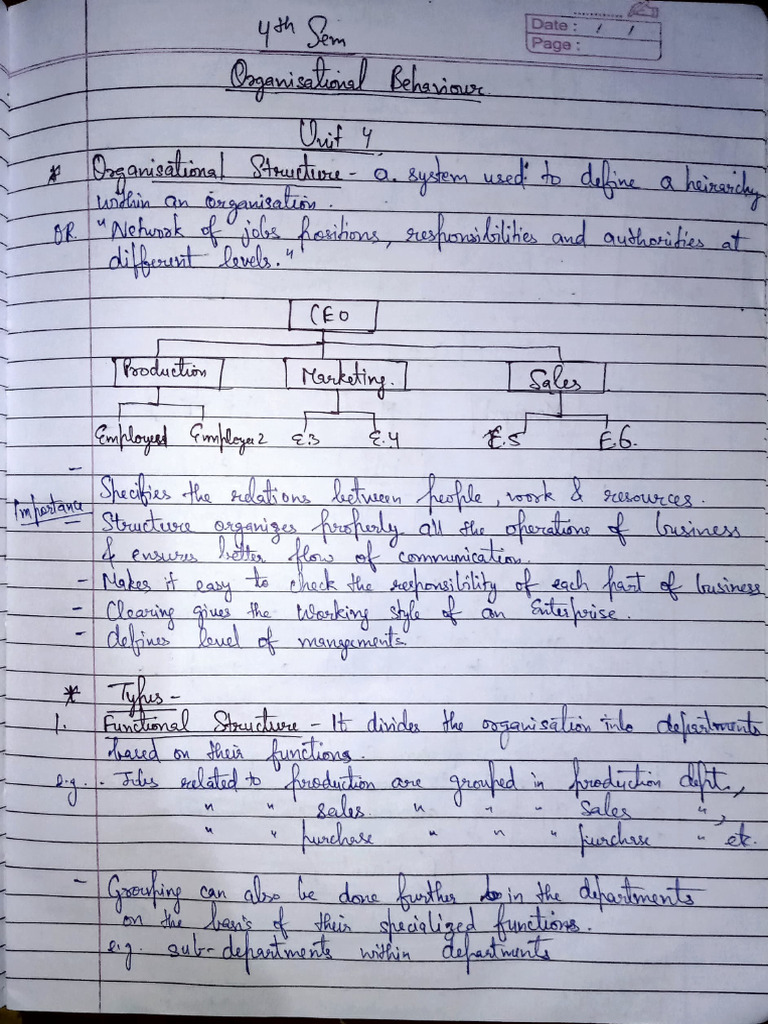 4th Sem
Date : / /
Page :
Organisational Behaviour
Unit 4
* Organisational Structure - a system used to define a heirarchy
within an organisation.
OR "Network of jobs positions, responsibilities and authorities at
different levels."
CEO
Production Marketing. Sales
Employee1 Employee2 E.3 E.4 E.5 E.6.
-
Specifies the relations between people, work & resources.
Importance Structure organizes properly all the operations of business
& ensures better flow of communication.
- Makes it easy to check the responsibility of each part of business
- Clearing gives the working style of an Enterprise.
- defines level of mangements.
* Types -
1. Functional Structure - It divides the organisation into departments
based on their functions.
e.g. - Jobs related to production are grouped in production dept.,
" " sales " " " sales ",
" " purchase " " " purchase " etc.
- Grouping can also be done further in the departments
on the basis of their specialized functions.
e.g. sub-departments within departments